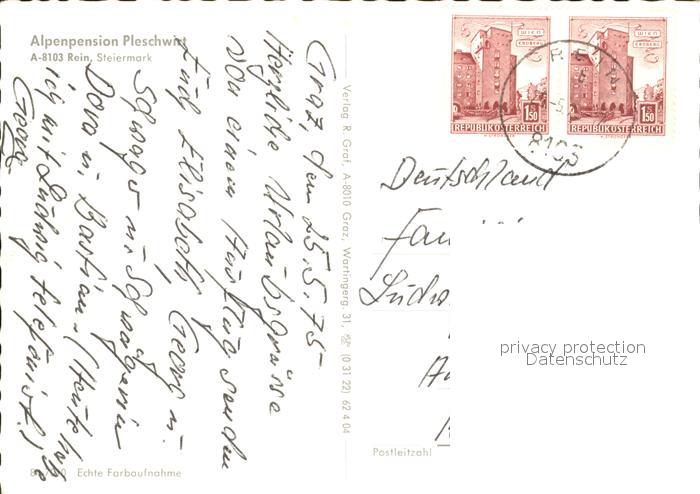 Alpenpension Pleschwirt
A-8103 Rein, Steiermark
Graz, den 25.5.75
Herzliche Urlaubsgrüsse
von einem Ausflug senden
Euch Elisabeth, Georg u.
Schwager u. Schwägerin
Dora u. Bastian. (Heute hab
ich mit Ludwig telefoniert.)
Georg
Echte Farbaufnahme
Verlag R. Graf, A-8010 Graz, Wartingerg. 31, ☏ (0 31 22) 62 4 04
WIEN
ERDBERG
1.50
REPUBLIK ÖSTERREICH
WIEN
ERDBERG
1.50
REPUBLIK ÖSTERREICH
8103
Deutschland
Postleitzahl
privacy protection
Datenschutz